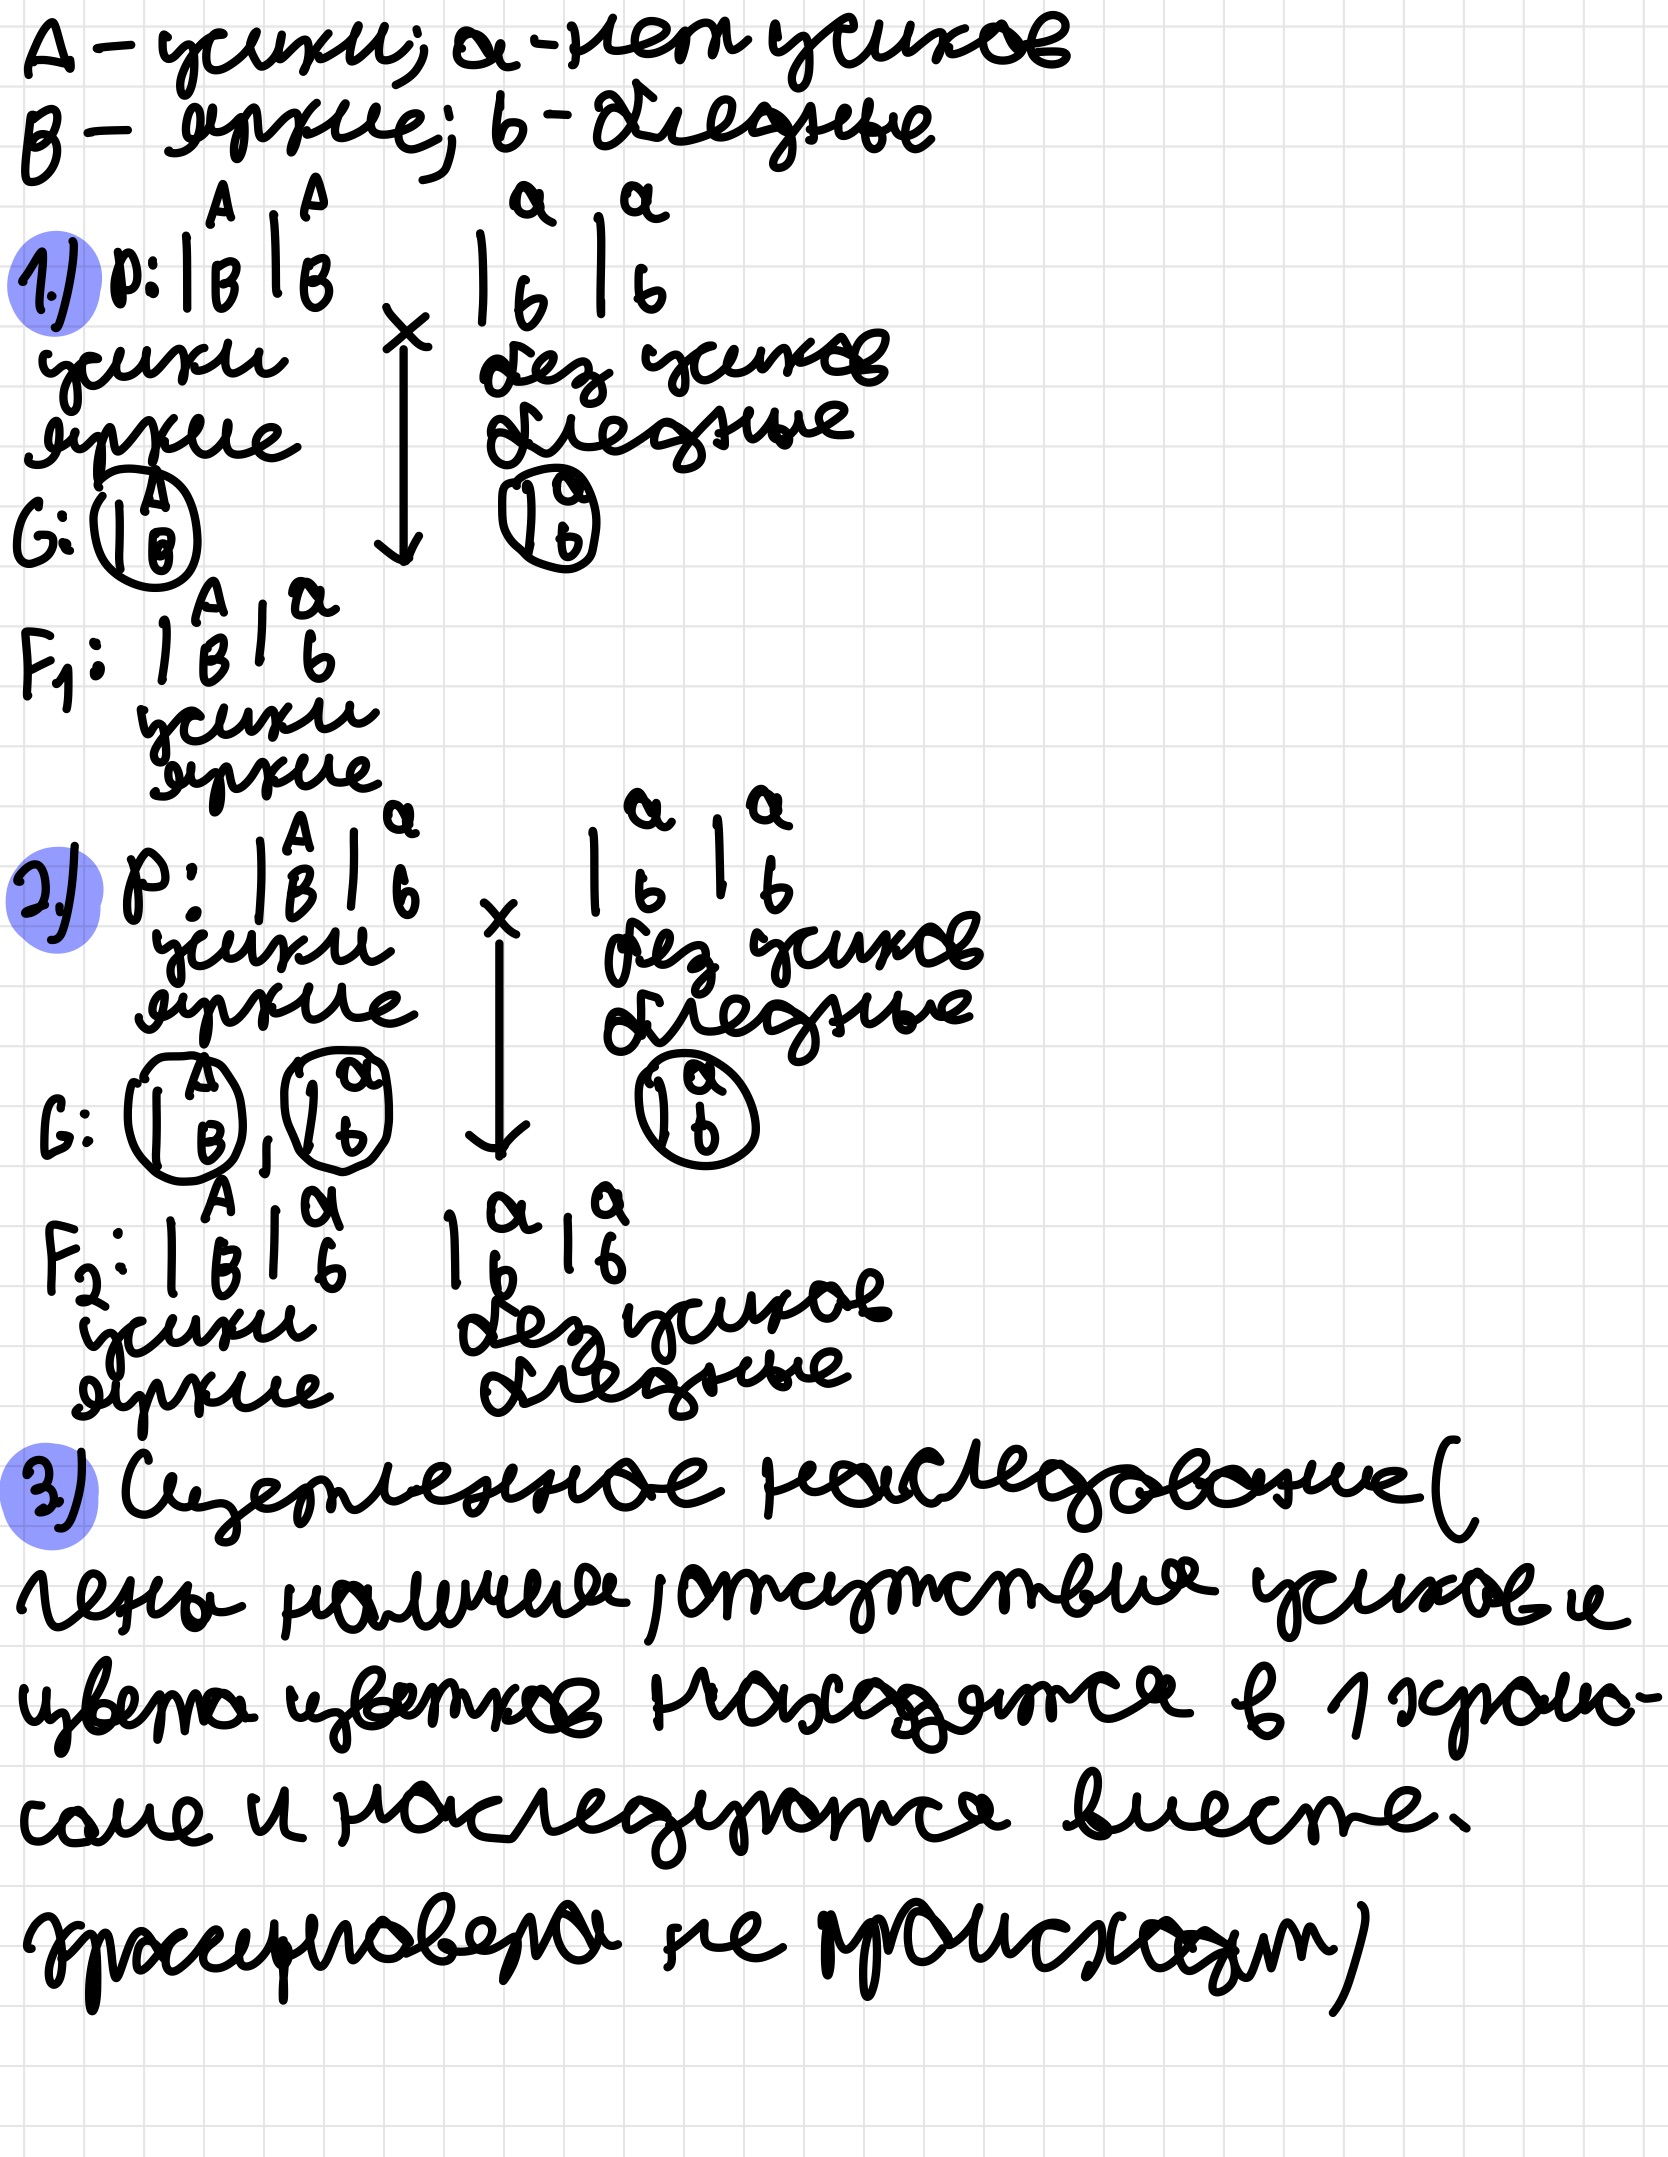 A – усики; a – нет усиков
B – яркие; b – бледные
A A a a
1.) P: | B | B | b | b
усики × без усиков
яркие бледные
G: | A B | a b
A a
F1: | B | b
усики
яркие
A a a a
2.) P: | B | b × | b | b
усики без усиков
яркие бледные
G: | A B , | a b | a b
A a a a
F2: | B | b | b | b
усики без усиков
яркие бледные
3.) Сцепленное наследование (
гены наличие/отсутствие усиков и
цвета цветков находятся в 1 хромо-
соме и наследуются вместе.
кроссинговера не происходит)